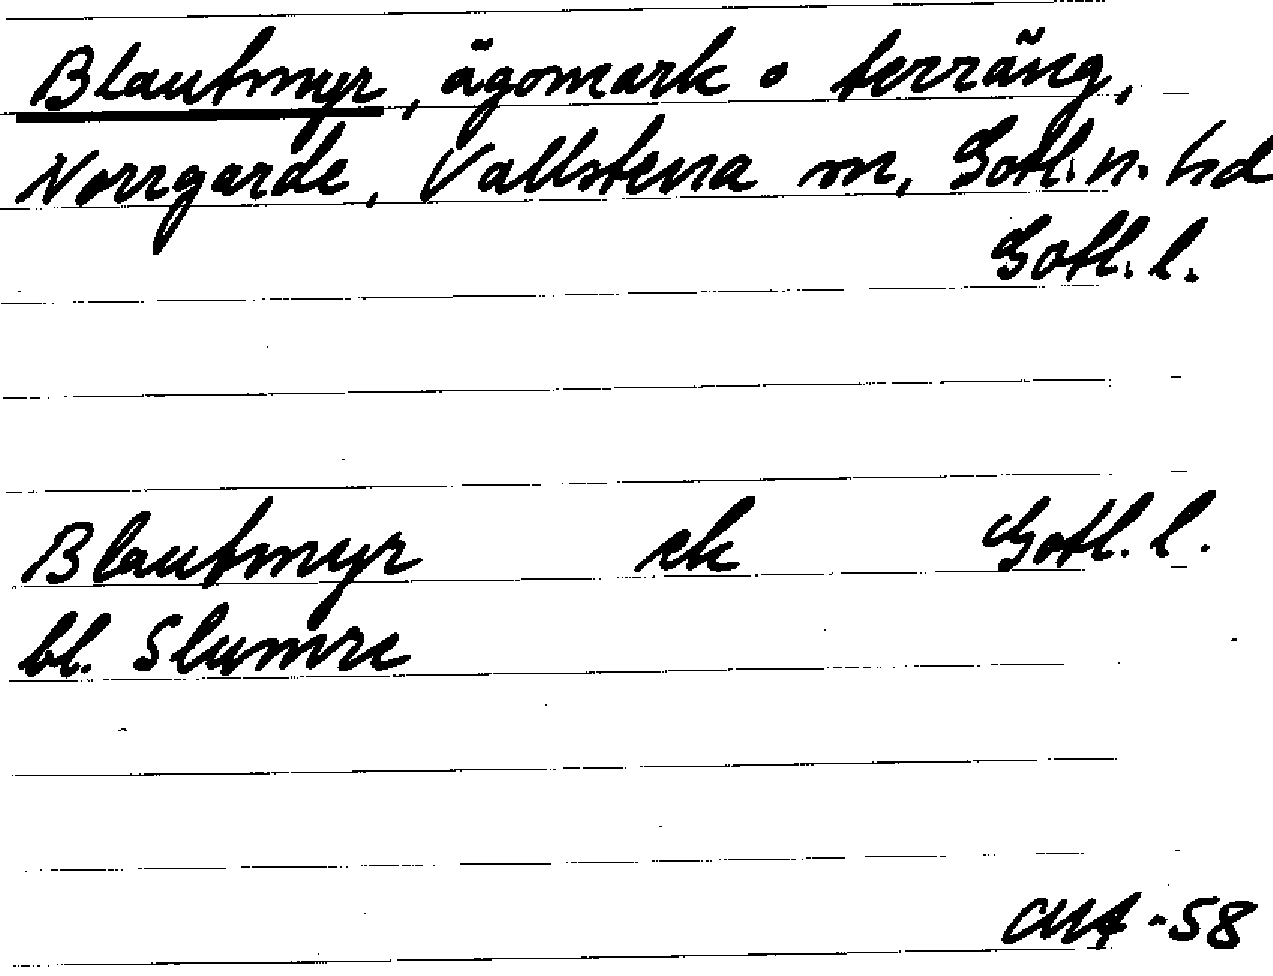 Blautmyr, ägomark o terräng,
Norrgarde, Vallstena sn, Gotl. n. hd
Gotl. l.
Blautmyr ek Gotl. l.
bl. Slumre
CMA -58